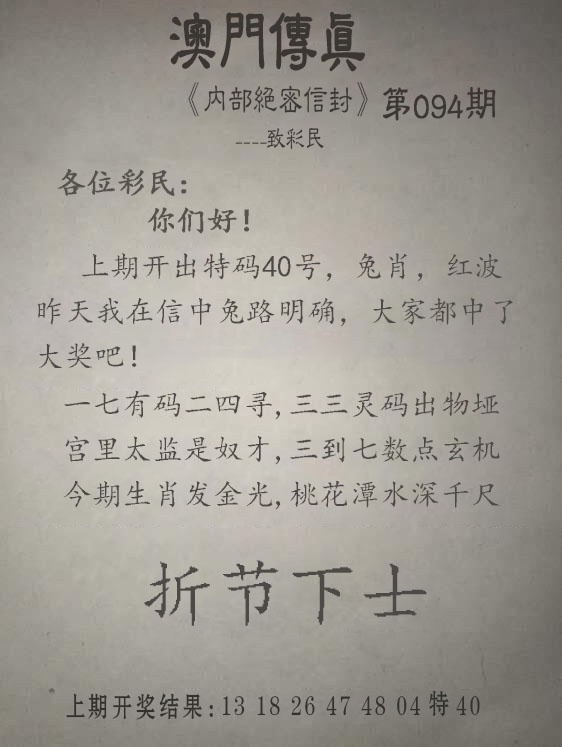 澳門傳眞
《内部絕密信封》第094期
----致彩民
各位彩民：
你们好！
上期开出特码40号，兔肖，红波
昨天我在信中兔路明确，大家都中了
大奖吧！
一七有码二四寻,三三灵码出物垭
宫里太监是奴才,三到七数点玄机
今期生肖发金光,桃花潭水深千尺
折节下士
上期开奖结果:13 18 26 47 48 04 特 40